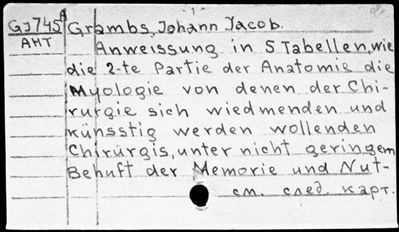 - 1 -
GJ745 Grambs, Johann Jacob.
AHT Anweissung in 5 Tabellen, wie
die 2-te Partie der Anatomie die
Myologie von denen der Chi-
rurgie sich wiedmenden und
künsstig werden wollenden
Chirurgis, unter nicht geringem
Behuft der Memorie und Nut-
см. след. карт.